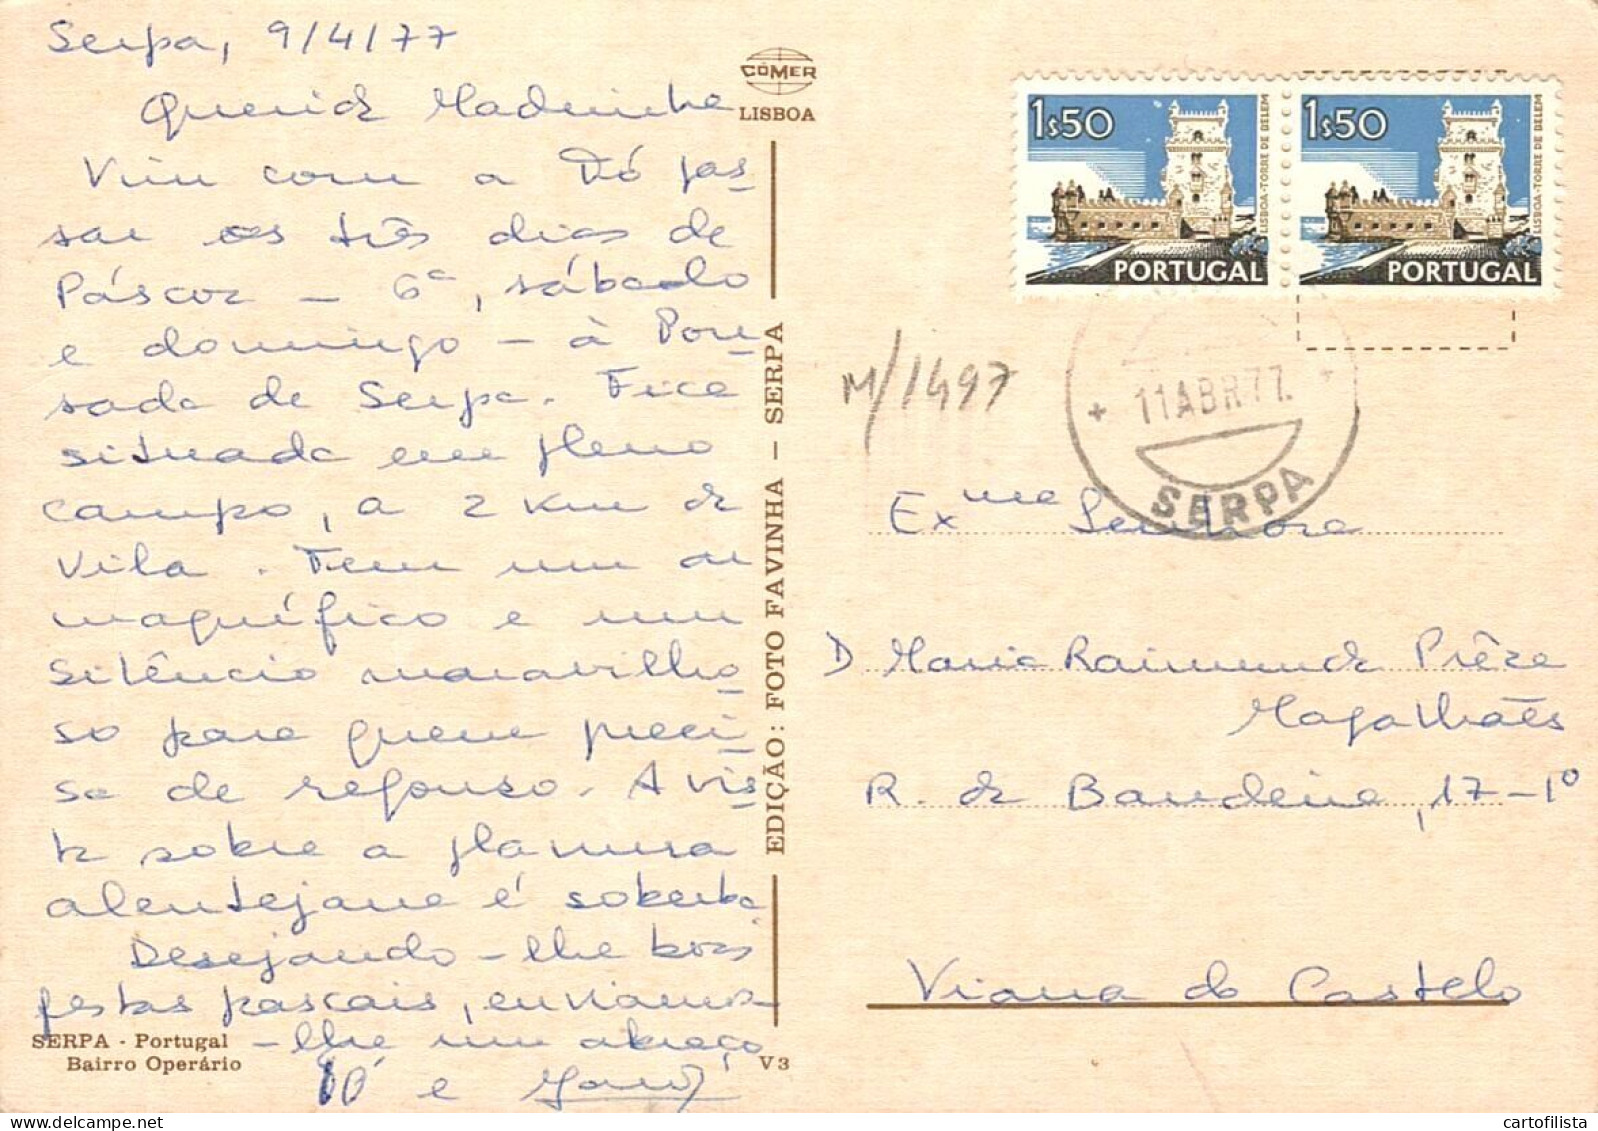 Serpa, 9/4/77
Querida Madrinha
Vim com a Tó pas-
sar os três dias de
Páscoa – 6ª, sábado
e domingo – à Pou-
sada de Serpa. Fica
situada em pleno
campo, a 2 km da
Vila. Tem um ar
magnífico e um
silêncio maravilho-
so para quem preci-
sa de repouso. A vis-
ta sobre a planura
alentejana é soberba.
Desejando-lhe boas
festas pascais, enviamo-
-lhe um abraço
Tó e
SERPA - Portugal
Bairro Operário
V 3
CÓMER
LISBOA
EDIÇÃO: FOTO FAVINHA – SERPA
1$50
LISBOA-TORRE DE BELEM
PORTUGAL
1$50
LISBOA-TORRE DE BELEM
PORTUGAL
M/1497
11 ABR 77
SERPA
Exma Senhora
D Maria Raimunda Prêza
Magalhães
R. da Bandeira, 17-1º
Viana do Castelo
cartofilista